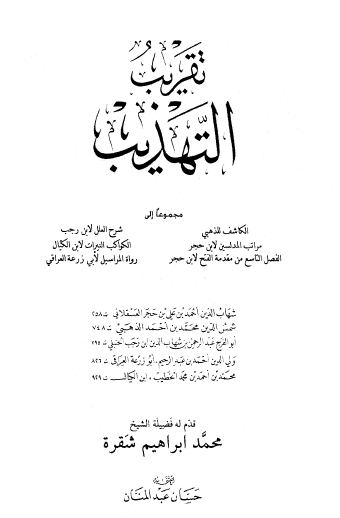 تقريب
التهذيب
مجموعاً إلى
الكاشف للذهبي
شرح العلل لابن رجب
مراتب المدلسين لابن حجر
الكواكب النيرات لابن الكيال
الفصل التاسع من مقدمة الفتح لابن حجر
رواة المراسيل لأبي زرعة العراقي
شهاب الدين أحمد بن علي بن حجر العسقلاني ت ٨٥٢
شمس الدين محمد بن أحمد الذهبي ت ٧٤٨
أبو الفرج عبد الرحمن بن شهاب الدين ابن رجب الحنبلي ت ٧٩٥
ولي الدين أحمد بن عبد الرحيم، أبو زرعة العراقي ت ٨٢٦
محمد بن أحمد بن محمد الخطيب، ابن الكيال ت ٩٢٩
قدم له فضيلة الشيخ
محمد ابراهيم شقرة
اعتنى به
حسان عبد المنان